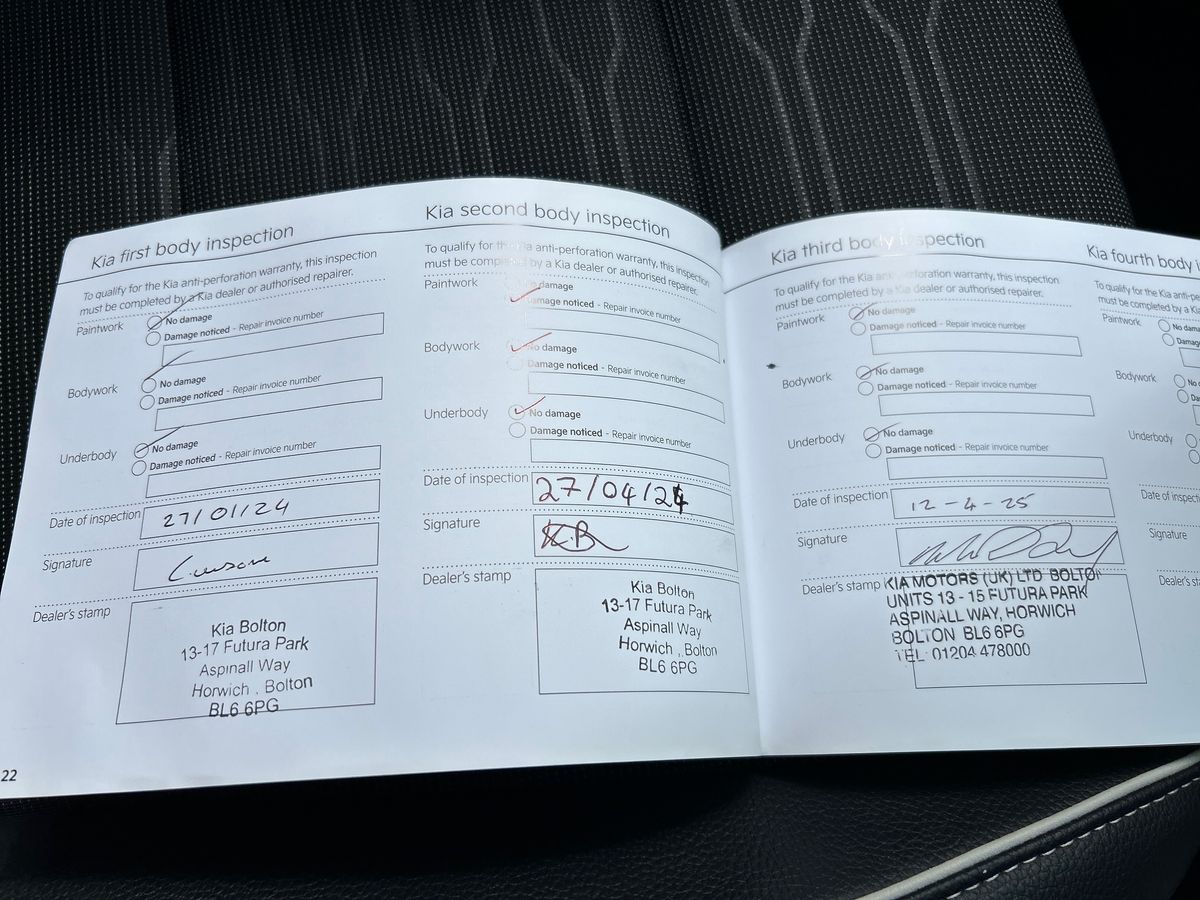 Kia first body inspection
To qualify for the Kia anti-perforation warranty, this inspection
must be completed by a Kia dealer or authorised repairer.
Paintwork
No damage
Damage noticed - Repair invoice number
Bodywork
No damage
Damage noticed - Repair invoice number
Underbody
No damage
Damage noticed - Repair invoice number
Date of inspection 27/01/24
Signature
Dealer's stamp
Kia Bolton
13-17 Futura Park
Aspinall Way
Horwich , Bolton
BL6 6PG
22
Kia second body inspection
To qualify for the Kia anti-perforation warranty, this inspection
must be completed by a Kia dealer or authorised repairer.
Paintwork
damage
Damage noticed - Repair invoice number
Bodywork
No damage
Damage noticed - Repair invoice number
Underbody
No damage
Damage noticed - Repair invoice number
Date of inspection 27/04/24
Signature
Dealer's stamp
Kia Bolton
13-17 Futura Park
Aspinall Way
Horwich , Bolton
BL6 6PG
Kia third body inspection
To qualify for the Kia anti-perforation warranty, this inspection
must be completed by a Kia dealer or authorised repairer.
Paintwork
No damage
Damage noticed - Repair invoice number
Bodywork
No damage
Damage noticed - Repair invoice number
Underbody
No damage
Damage noticed - Repair invoice number
Date of inspection 12-4-25
Signature
Dealer's stamp
KIA MOTORS (UK) LTD BOLTON
UNITS 13 - 15 FUTURA PARK
ASPINALL WAY, HORWICH
BOLTON BL6 6PG
TEL: 01204 478000
Kia fourth body i
To qualify for the Kia anti-per
must be completed by a Kia
Paintwork
No dama
Damag
Bodywork
No d
Da
Underbody
Date of inspect
Signature
Dealer's st